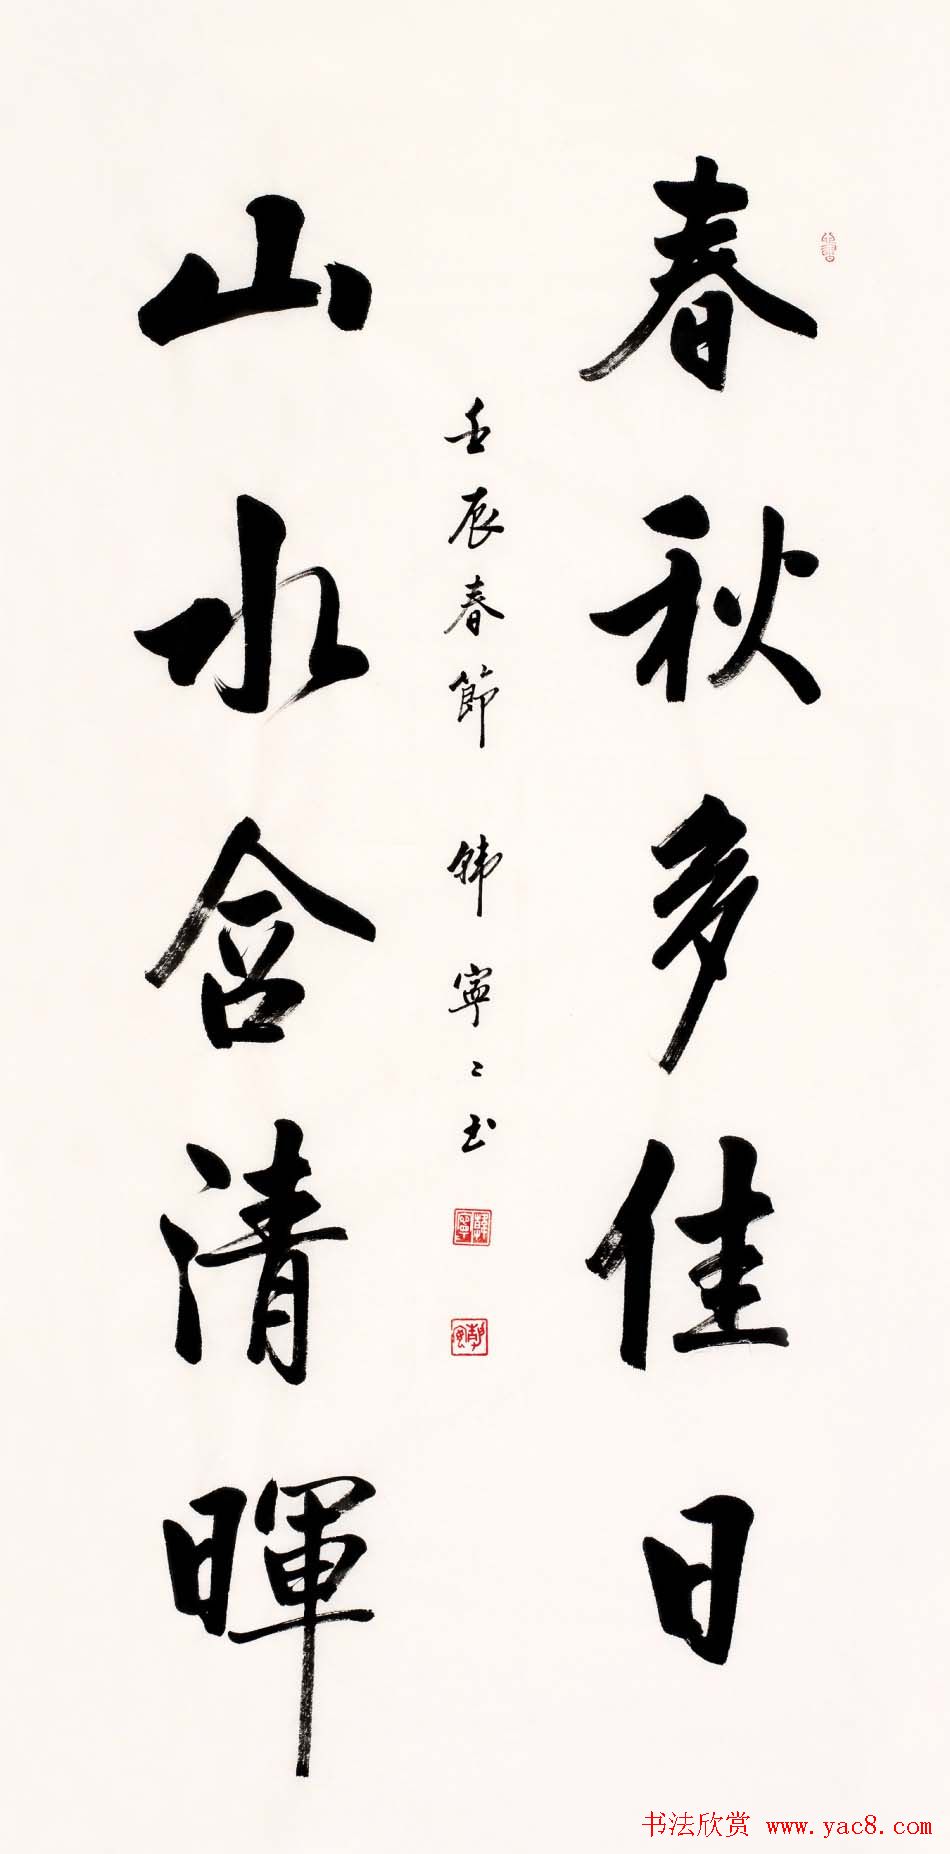 春秋多佳日
壬辰春節 韓寧寧書
山水含清暉
韓寧
书法欣赏 www.yac8.com